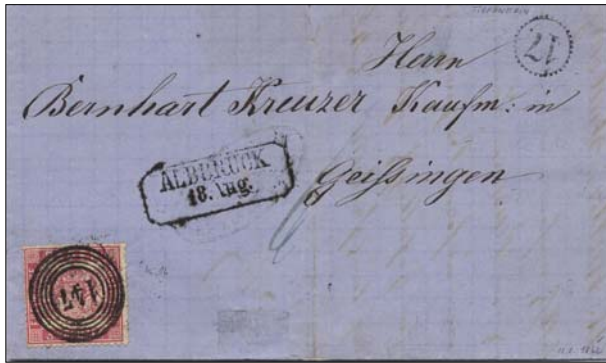 Herrn
Bernhart Kreuzer Kaufm: in
Geissingen
ALBBRUCK
18. Aug.